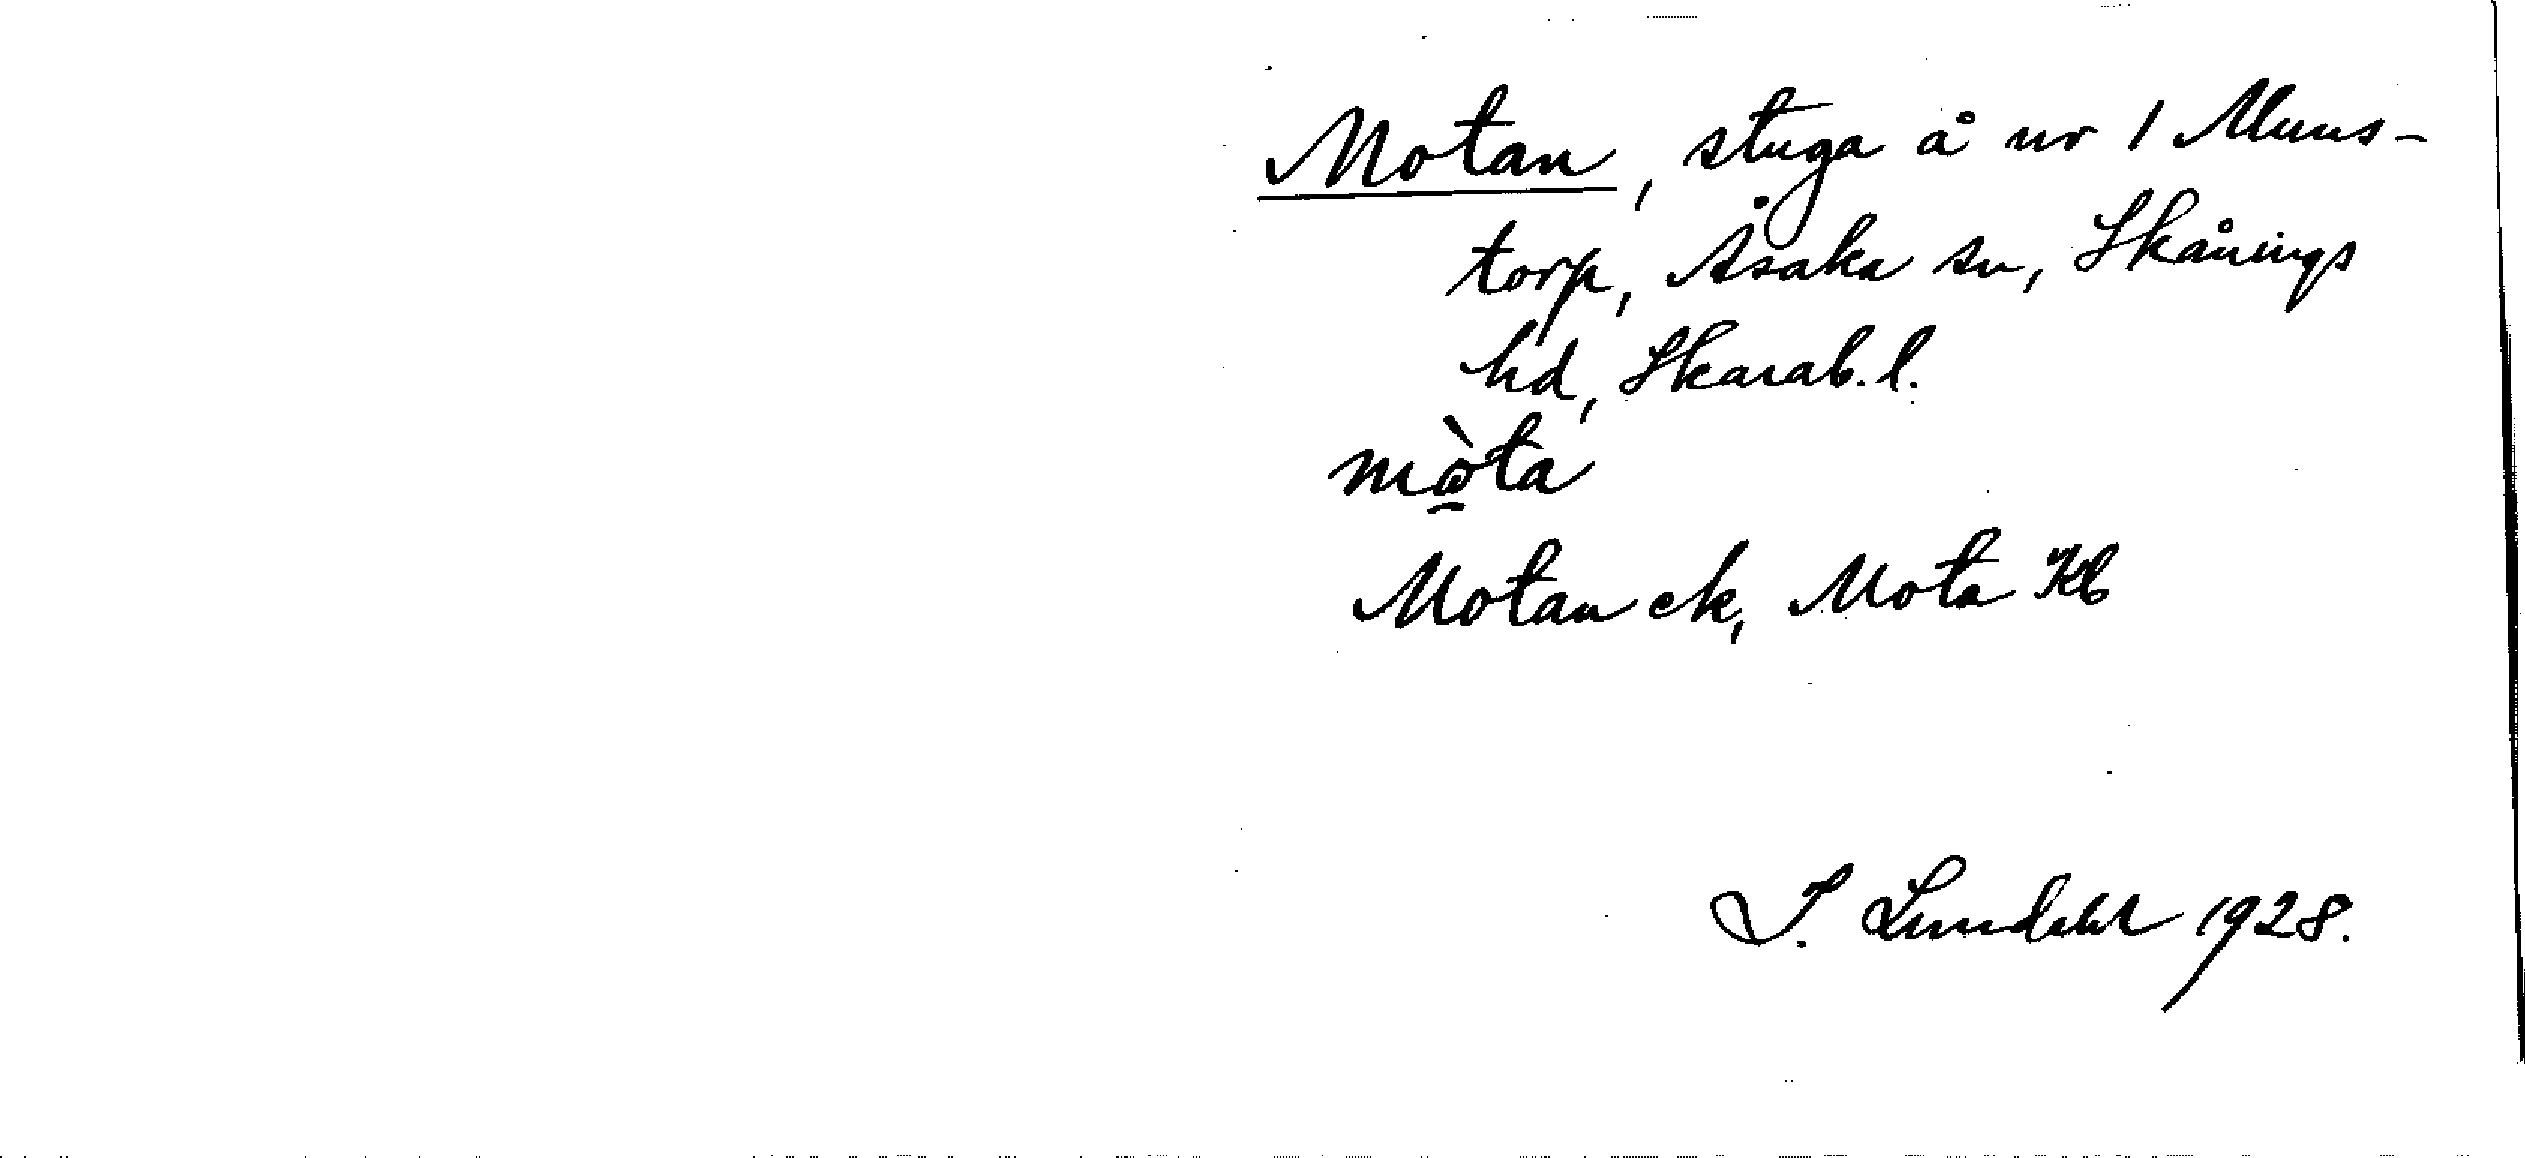 Motan, stuga å nr 1 Muns-
torp, Åsaka sn, Skånings
hd, Skarab. l.
mò̱ta
Motan ek, Mota Kb
I. Lundahl 1928.